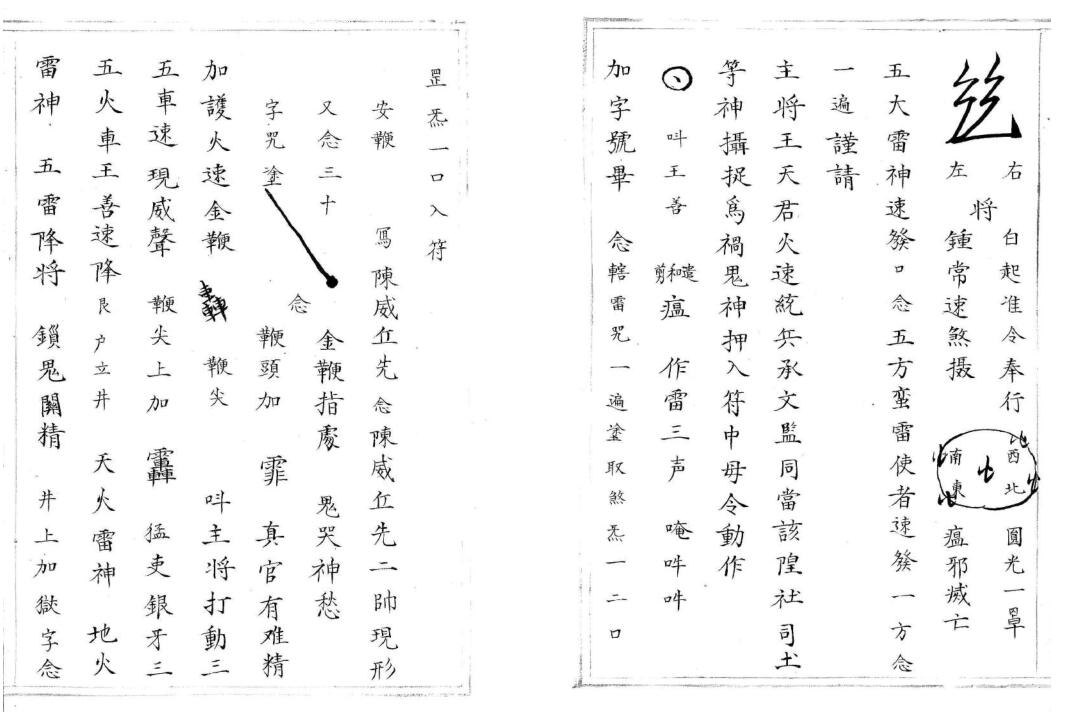 右 白起准令奉行 西北 圓光一罩
将
左 鍾常速煞摄 南東 瘟邪滅亡
五大雷神速發口念五方蛮雷使者速發一方念
一遍謹請
主将王天君火速統兵承文監同當該隍社司土
等神攝捉為禍鬼神押入符中毋令動作
叫王善 剪和遣瘟 作雷三声 唵吽吽
加字號畢 念轄雷咒一遍塗取煞炁一二口
罡炁一口入符
安鞭 寫陳威丘先念陳威丘先二帥現形
又念三十 金鞭指處 鬼哭神愁
念
字咒塗 鞭頭加 霏 真官有难精
加護火速金鞭 轟 鞭尖 叫主将打動三
五車速現威聲 鞭尖上加 轟 猛吏銀牙三
五火車王善速降 艮户立井 天火雷神 地火
雷神 五雷降将 鎖鬼關精 井上加嶽字念